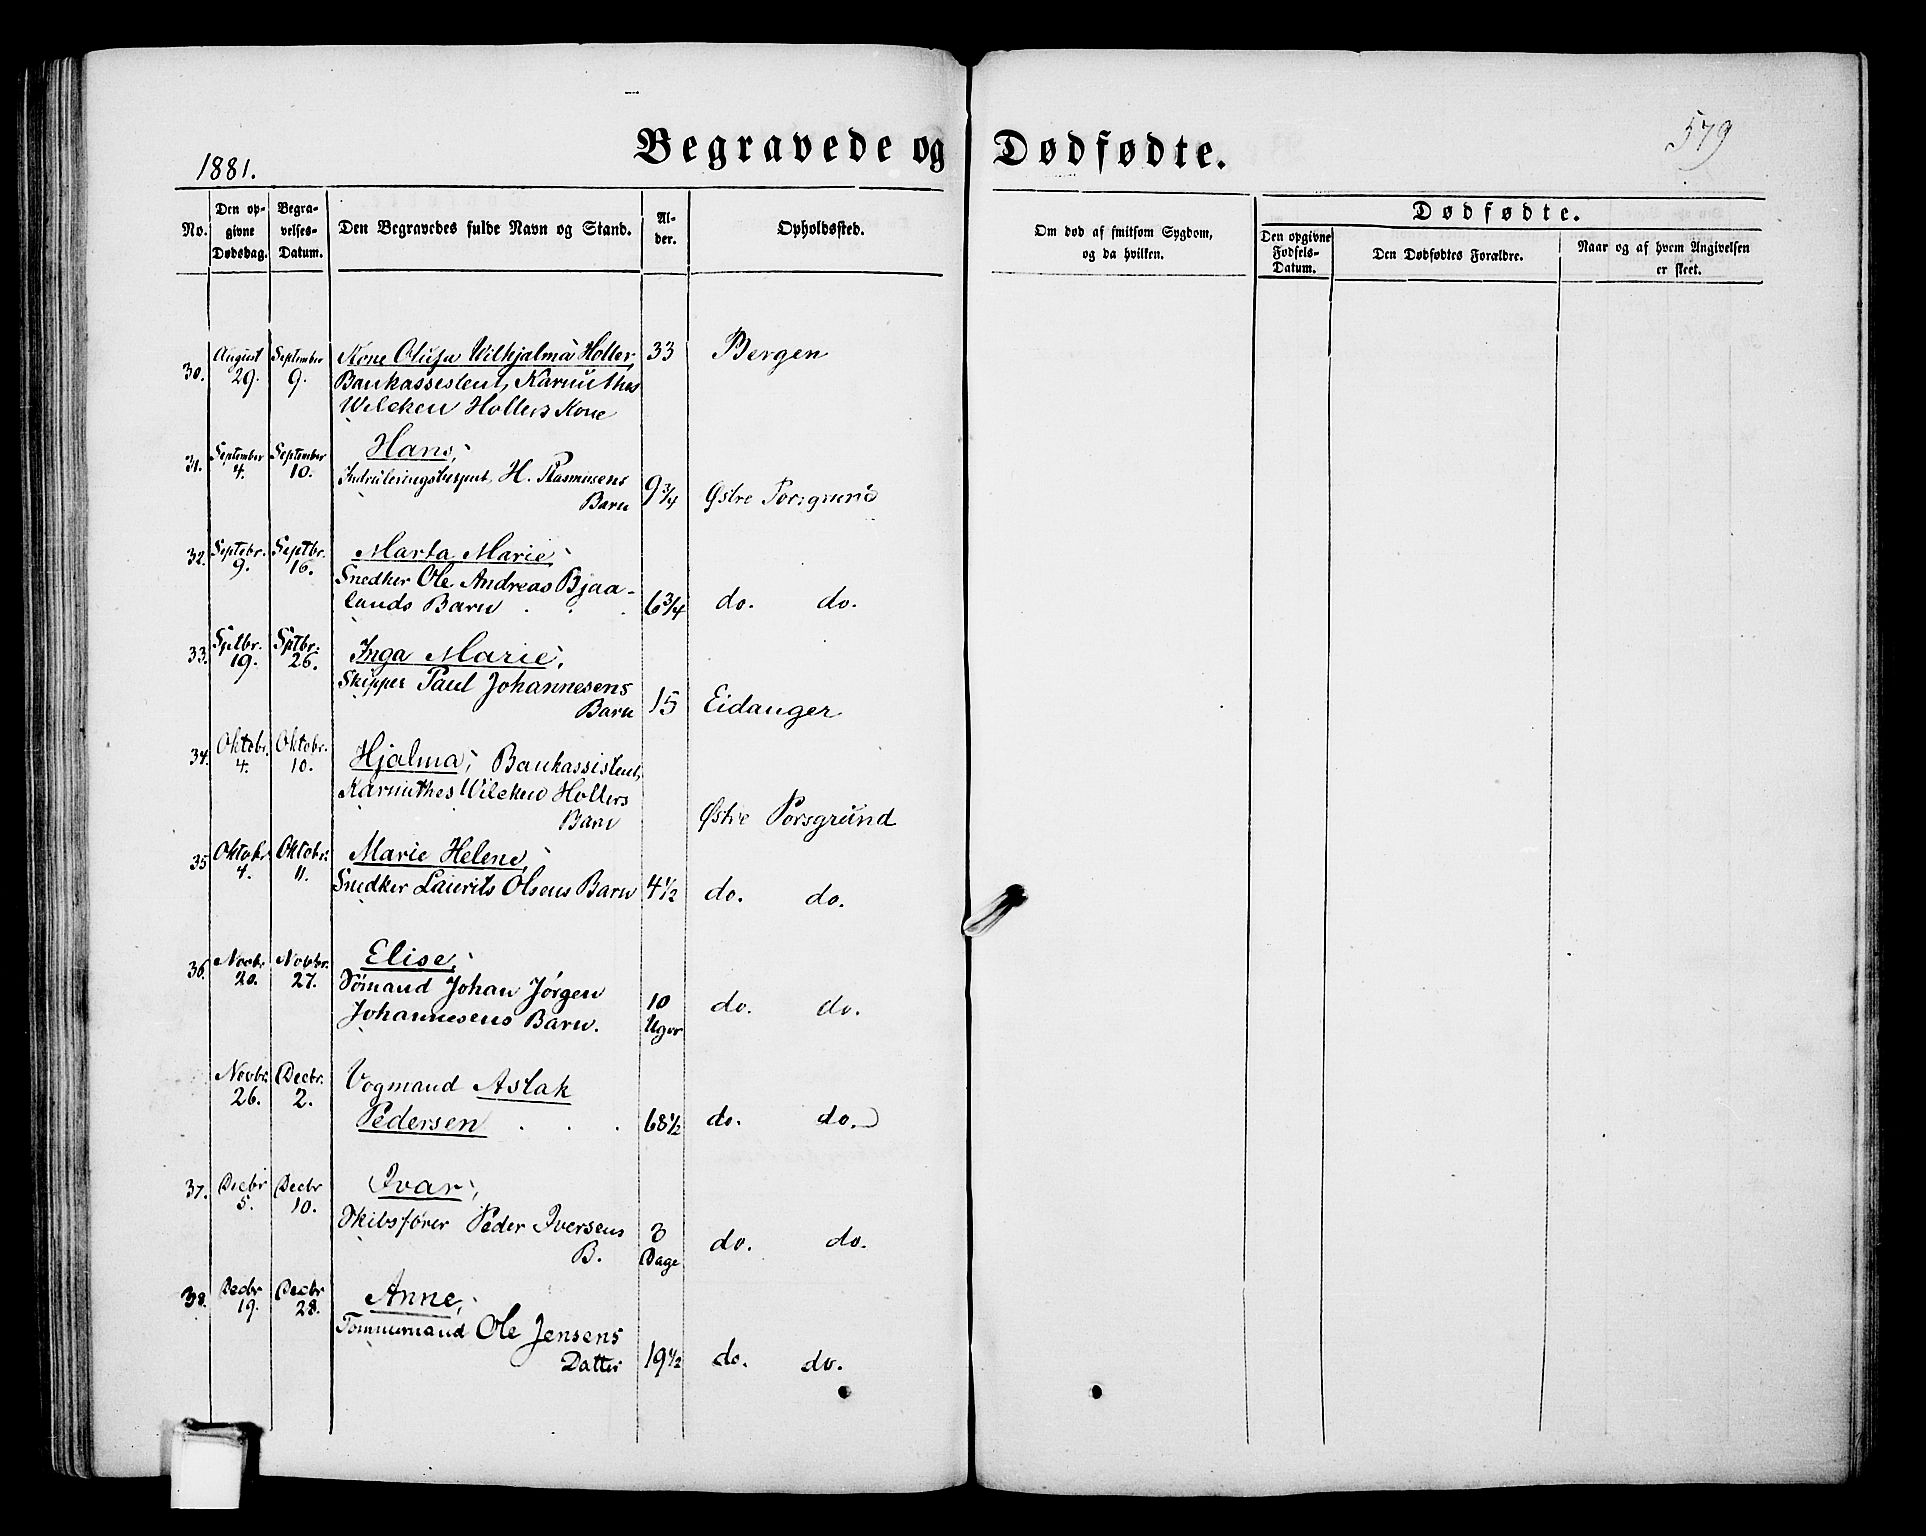 1881.
Begravede og Dødfødte.
579
No.
Den op-
givne
Dødsdag.
Begra-
velses-
Datum.
Den Begravedes fulde Navn og Stand.
Al-
der.
Opholdssted.
Om død af smitsom Sygdom,
og da hvilken.
Dødfødte.
Den opgivne
Fødsels-
Datum.
Den Dødfødtes Forældre.
Naar og af hvem Angivelsen
er skeet.
30. August 29. September 9. Kone Olufa Wilhjalma Holler, 33 Bergen
Bankassistent, Karinthes
Wilcken Hollers Kone
31. September 4. September 10. Hans,
H. Rasmusens
Barn 9 3/4 Østre Porsgrund
32. Septebr. 9. Septbr. 16. Marta Marie,
Snedker Ole Andreas Bjaa-
lands Barn 6 3/4 do. do.
33. Sptbr. 19. Sptbr. 26. Inga Marie,
Skipper Paul Johannesens
Barn 15 Eidanger
34. Oktobr. 4. Oktobr. 10. Hjalma, Bankassistent,
Karinthes Wilcken Hollers
Barn Østre Porsgrund
35 Oktobr 4. Oktobr. 11. Marie Helene,
Snedker Laurits Olsens Barn 4 1/2 do. do.
36. Novbr 20. Novbr. 27. Elise,
Sømand Johan Jørgen
Johannesens Barn. 10 Uger do. do.
Novbr. 26. Decbr. 2. Vogmand Aslak
Pedersen 68 1/2 do. do.
37. Decbr 5. Decbr 10. Ivar,
Skibsfører Peder Iversens
B. 3 Dage do. do.
38. Decbr 19. Decbr 28. Anne,
Tømmermand Ole Jensens
Datter 19 1/2 do. do.